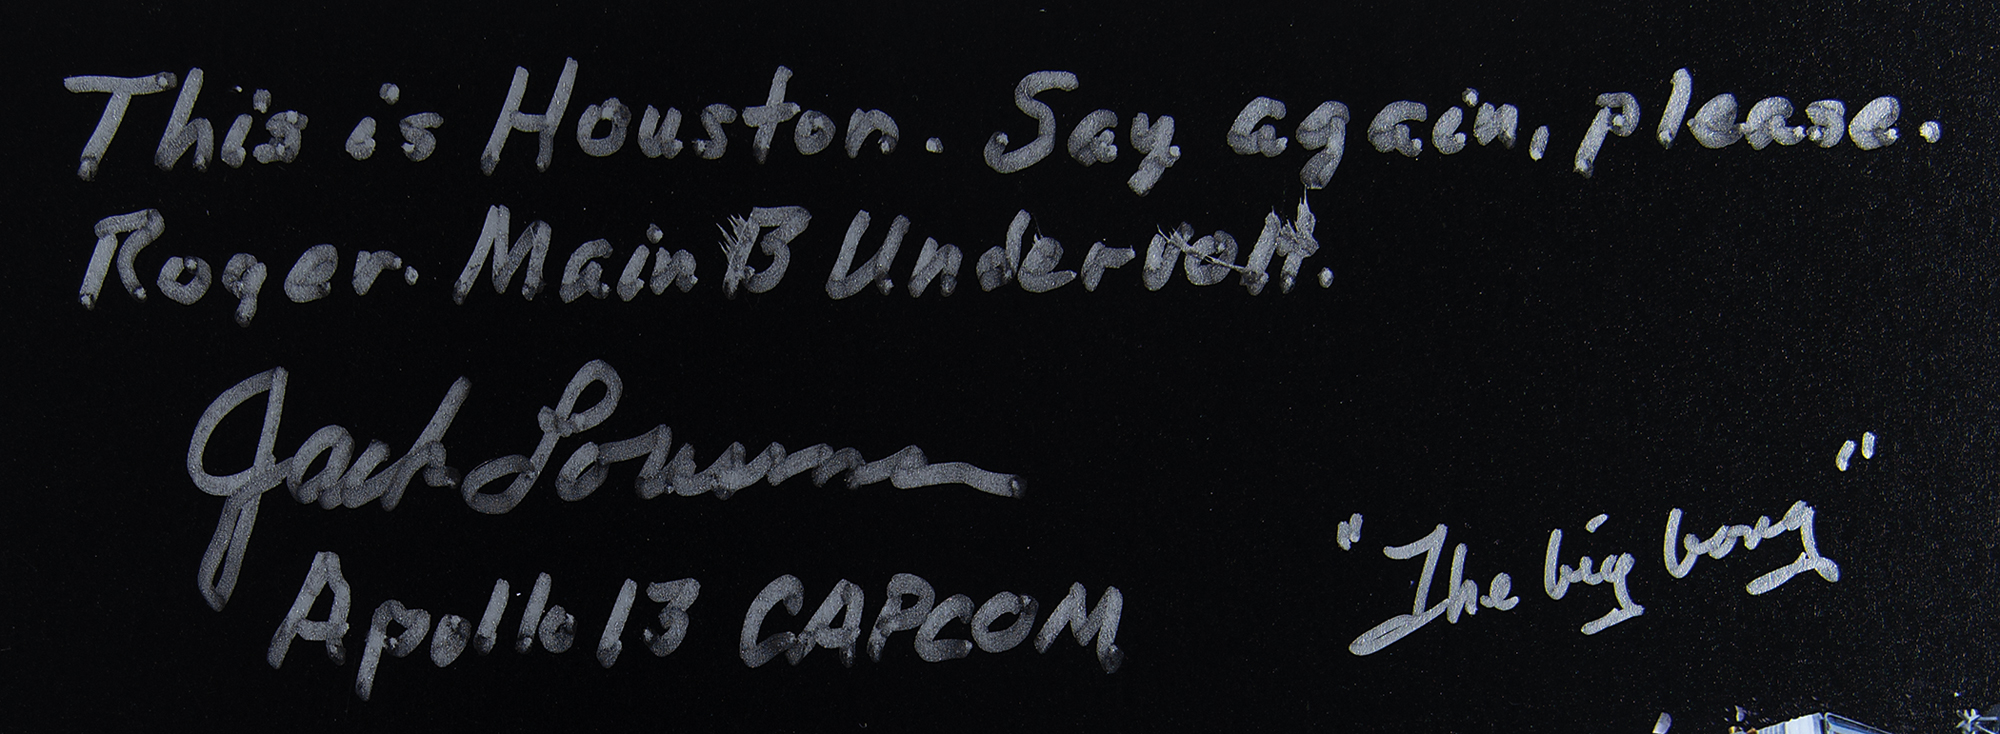 This is Houston. Say again, please.
Roger. Main B Undervolt.
Jack Lousma
Apollo 13 CAPCOM
"The big bang"